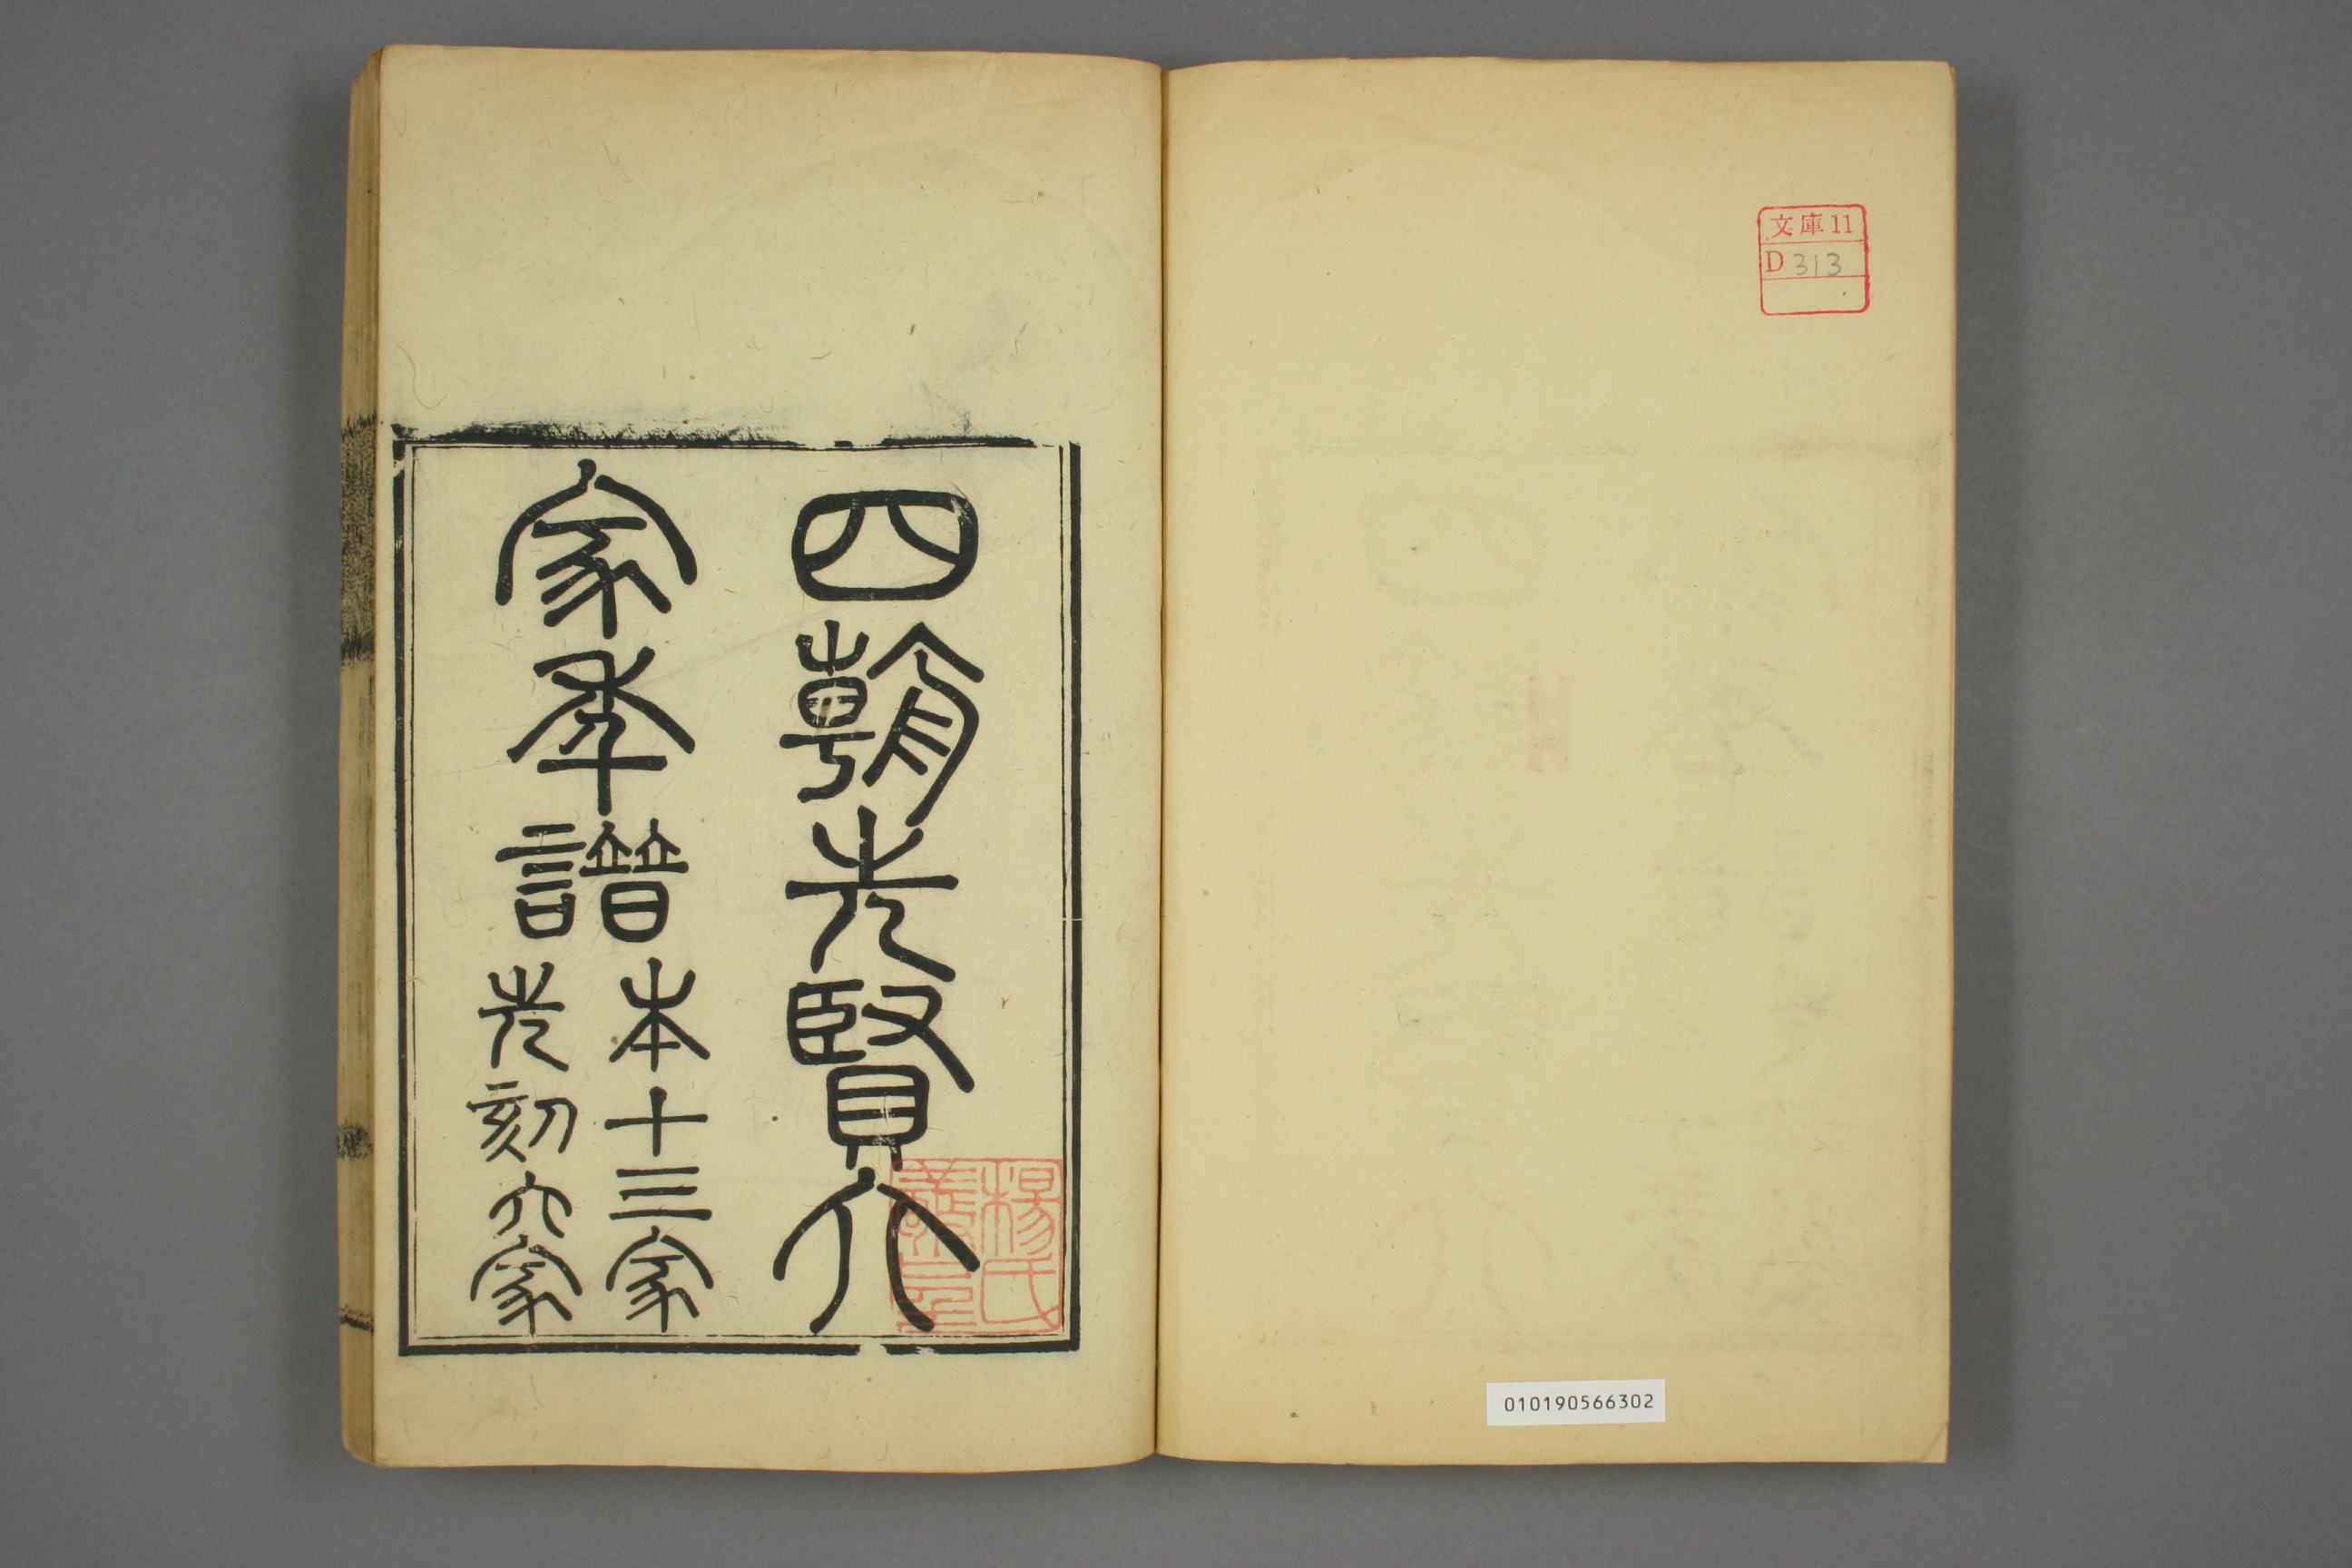 文庫11
D 313
010190566302
四朝先賢六
家年譜
本十三家
先刻六家
楊氏